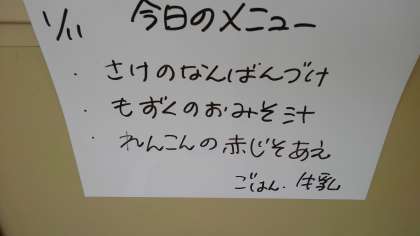 1/11 今日のメニュー
・さけのなんばんづけ
・もずくのおみそ汁
・れんこんの赤じそあえ
ごはん・牛乳